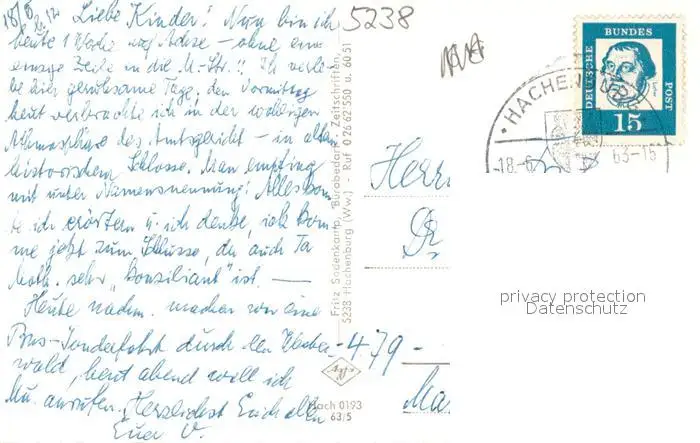 18/6
Liebe Kinder! Nun bin ich
heute 1 Woche auf Achse – ohne eine
einzige Zeile in die M.-Str.!! Ich verle-
be hier geruhsame Tage, den Vormittag
heut verbrachte ich in der
Atmosphäre des Amtsgericht – in alten
historischem Schlosse. Man empfing
mit unter Namensnennung! Alles konn-
te ich erörtern u. ich denke, ich kom-
me jetzt zum Schlusse, da auch
sehr "Konziliant" ist. —
Heute nachm. machen wir eine
Bus-Sonderfahrt durch den Wester-
wald, heut abend will ich
Mu. anrufen. Herzlichst Euch allen
Euer V.
Fritz Sodenkamp, Bürobedarf Zeitschriften
5238 Hachenburg (Ww.) Ruf 0 26 62/550 u. 6051
Agfa
Hach 0193
63/5
5238
DEUTSCHE
BUNDES
POST
15
HACHENBURG
18.-6. 63-15
Herrn
Dr.
479 –
privacy protection
Datenschutz